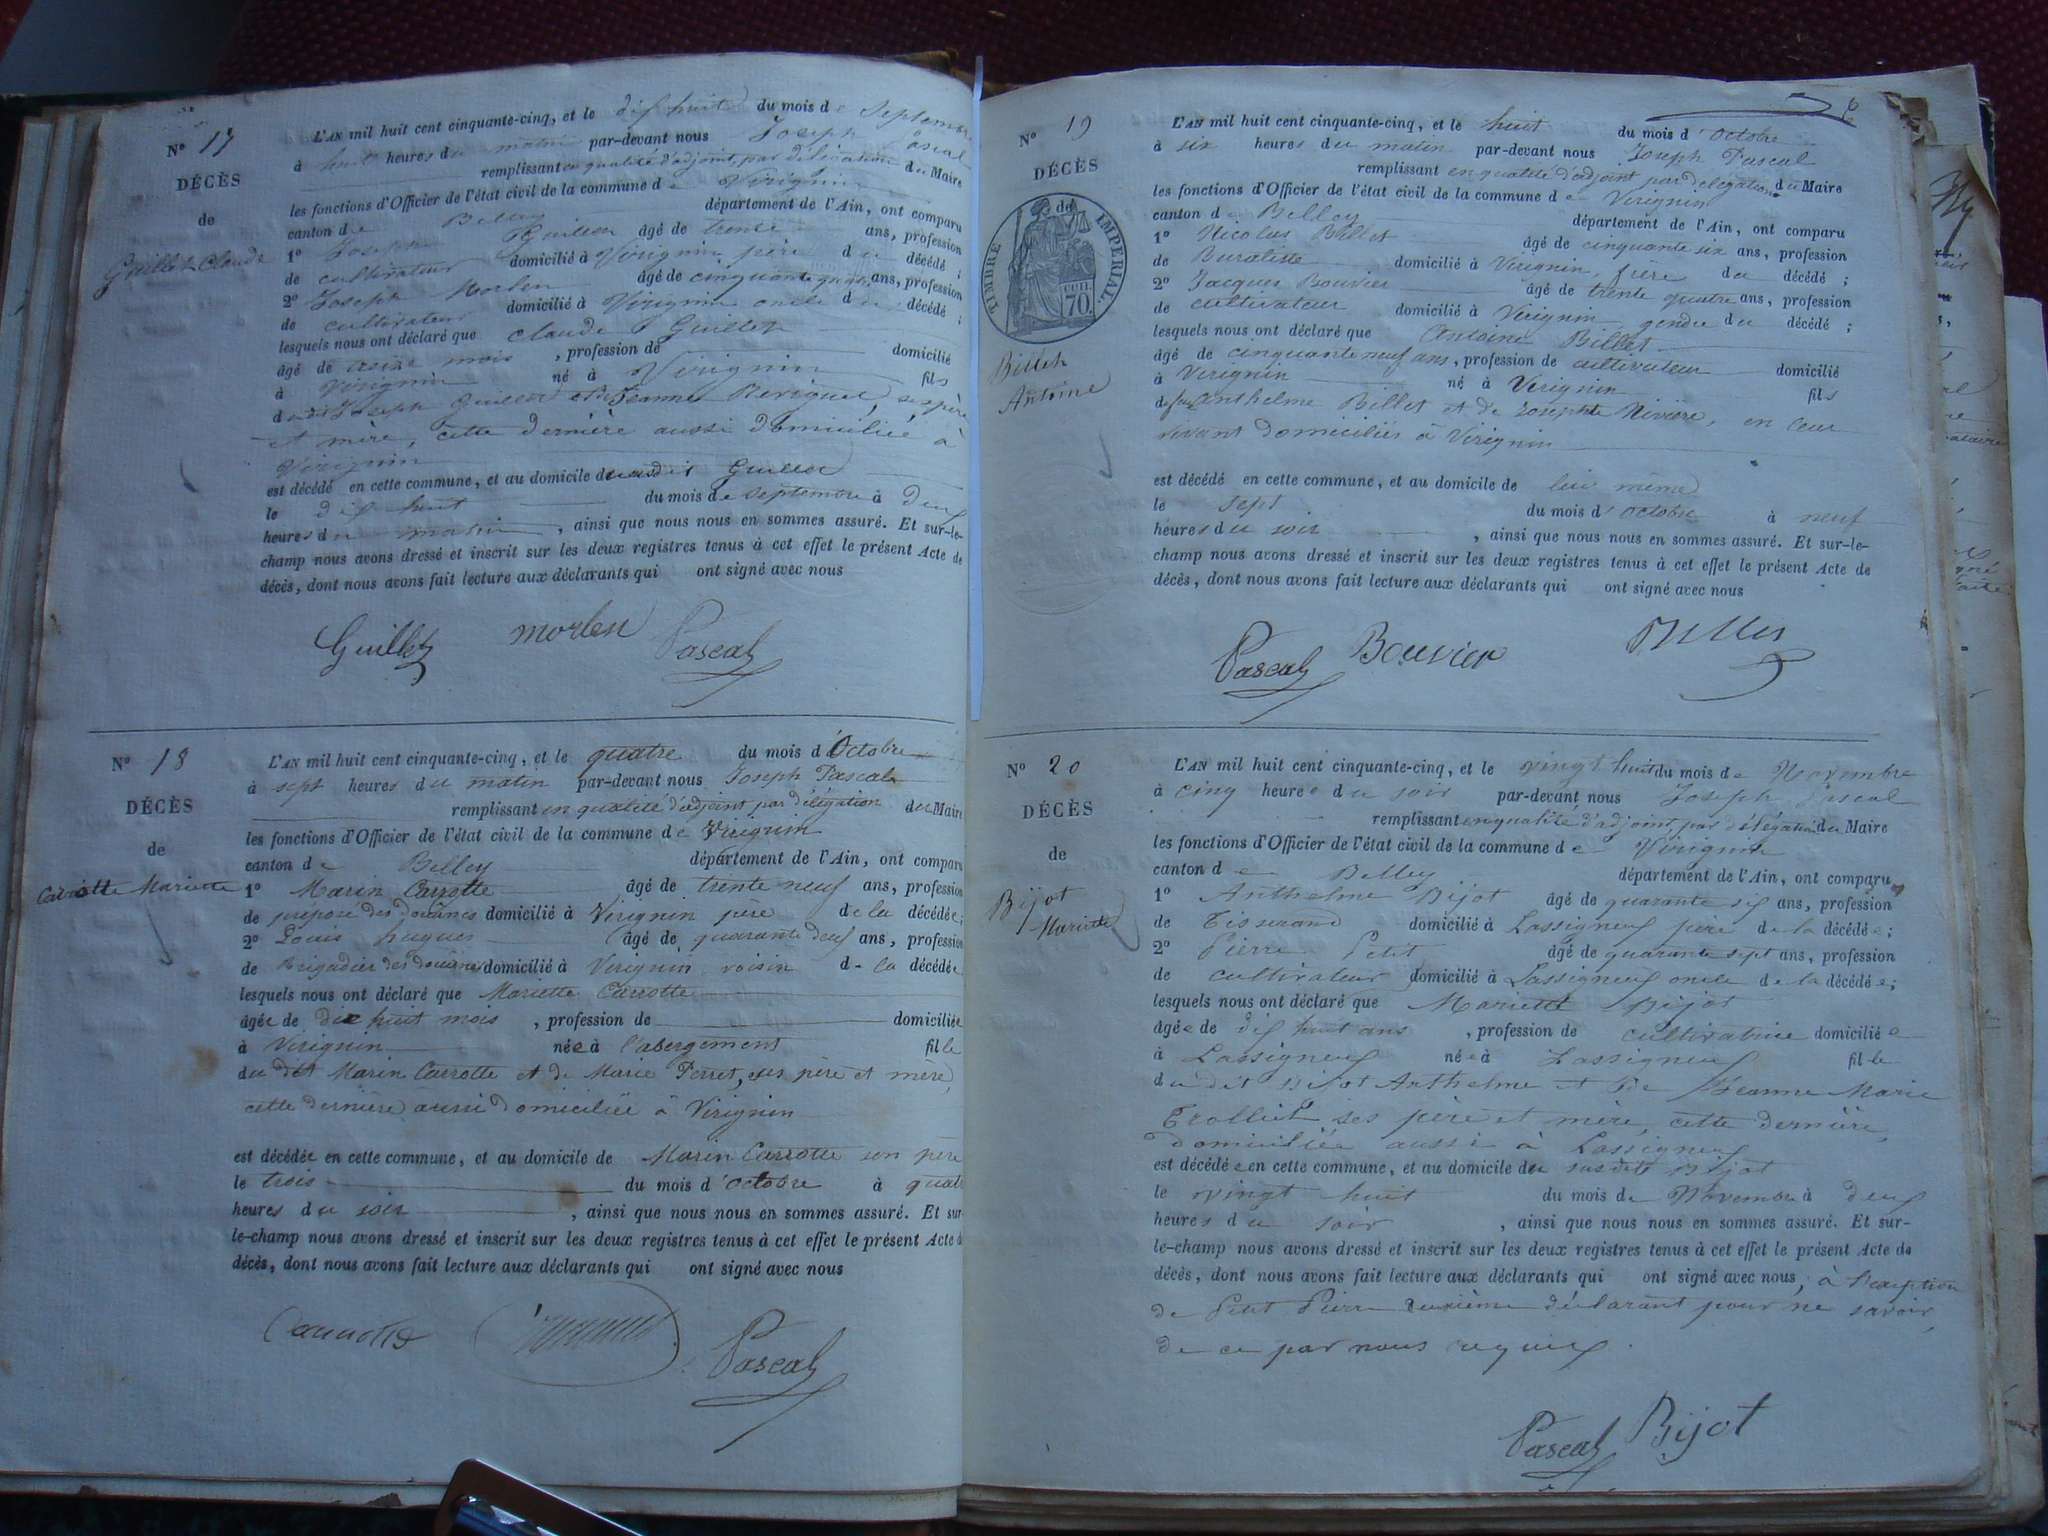 Nº 17
DÉCÈS
de
Guillet Claude
L'AN mil huit cent cinquante-cinq, et le dix huit du mois de Septembre
à huit heures du matin par-devant nous Joseph Pascal
remplissant en qualité d'adjoint, par délégation du Maire
les fonctions d'Officier de l'état civil de la commune de Virignin
canton de Belley département de l'Ain, ont comparu
1º Joseph Guillet âgé de trente ans, profession
de cultivateur domicilié à Virignin père du décédé ;
2º Joseph Morlen âgé de cinquante quatre ans, profession
de cultivateur domicilié à Virignin oncle du décédé ;
lesquels nous ont déclaré que Claude Guillet
âgé de seize mois , profession de domicilié
à Virignin né à Virignin fils
dudit Joseph Guillet et de Jeanne Reviguet, ses père
et mère, cette dernière aussi domiciliée à
Virignin
est décédé en cette commune, et au domicile dudit Guillet
le dix huit du mois de septembre à deux
heures du matin , ainsi que nous nous en sommes assuré. Et sur-le-
champ nous avons dressé et inscrit sur les deux registres tenus à cet effet le présent Acte de
décès, dont nous avons fait lecture aux déclarants qui ont signé avec nous
Guillet morlen Pascal
Nº 18
DÉCÈS
de
Carrotte Mariette
L'AN mil huit cent cinquante-cinq, et le quatre du mois d'Octobre
à sept heures du matin par-devant nous Joseph Pascal
remplissant en qualité d'adjoint par délégation du Maire
les fonctions d'Officier de l'état civil de la commune de Virignin
canton de Belley département de l'Ain, ont comparu
1º Marin Carrotte âgé de trente neuf ans, profession
de préposé des douanes domicilié à Virignin père de la décédée;
2º Louis hugues âgé de quarante deux ans, profession
de Brigadier des douanes domicilié à Virignin voisin de la décédée
lesquels nous ont déclaré que Mariette Carrotte
âgée de dix huit mois , profession de domiciliée
à Virignin née à l'abergement fille
du dit Marin Carrotte et de Marie Perret, ses père et mère,
cette dernière aussi domiciliée à Virignin
est décédée en cette commune, et au domicile de Marin Carrotte son père
le trois du mois d'octobre à quatr
heures du soir , ainsi que nous nous en sommes assuré. Et sur-
le-champ nous avons dressé et inscrit sur les deux registres tenus à cet effet le présent Acte d
décès, dont nous avons fait lecture aux déclarants qui ont signé avec nous
Carrotte Pascal
Nº 19
DÉCÈS
de
TIMBRE IMPÉRIAL
70.
Billet
Antoine
6
L'AN mil huit cent cinquante-cinq, et le huit du mois d'Octobre
à six heures du matin par-devant nous Joseph Pascal
remplissant en qualité d'adjoint par délégation du Maire
les fonctions d'Officier de l'état civil de la commune de Virignin
canton de Belley département de l'Ain, ont comparu
1º Nicolas Billet âgé de cinquante six ans, profession
de Buraliste domicilié à Virignin, frère du décédé ;
2º Jacques Bouvier âgé de trente quatre ans, profession
de cultivateur domicilié à Virignin gendre du décédé ;
lesquels nous ont déclaré que Antoine Billet
âgé de cinquante neuf ans, profession de cultivateur domicilié
à Virignin né à Virignin fils
de feu Anthelme Billet et de Josephte Rivière, en leur
vivant domiciliés à Virignin
est décédé en cette commune, et au domicile de lui même
le sept du mois d'octobre à neuf
heures du soir , ainsi que nous nous en sommes assuré. Et sur-le-
champ nous avons dressé et inscrit sur les deux registres tenus à cet effet le présent Acte de
décès, dont nous avons fait lecture aux déclarants qui ont signé avec nous
Pascal Bouvier Billet
Nº 20
DÉCÈS
de
Bijot
Mariette
L'AN mil huit cent cinquante-cinq, et le vingt huit du mois de Novembre
à cinq heures du soir par-devant nous Joseph Pascal
remplissant en qualité d'adjoint, par délégation du Maire
les fonctions d'Officier de l'état civil de la commune de Virignin
canton de Belley département de l'Ain, ont comparu
1º Anthelme Bijot âgé de quarante six ans, profession
de Tisserand domicilié à Lassigneux père de la décédée;
2º Pierre Petit âgé de quarante sept ans, profession
de cultivateur domicilié à Lassigneux oncle de la décédée;
lesquels nous ont déclaré que Mariette Bijot
âgée de dix huit ans , profession de cultivatrice domiciliée
à Lassigneux née à Lassigneux fille
du dit Bijot Anthelme et de Jeanne Marie
Trolliet ses père et mère, cette dernière,
domiciliée aussi à Lassigneux
est décédée en cette commune, et au domicile du susdit Bijot
le vingt huit du mois de Novembre à deux
heures du soir , ainsi que nous nous en sommes assuré. Et sur-
le-champ nous avons dressé et inscrit sur les deux registres tenus à cet effet le présent Acte de
décès, dont nous avons fait lecture aux déclarants qui ont signé avec nous, à l'exception
de Petit Pierre deuxième déclarant pour ne savoir,
de ce par nous requis.
Pascal Bijot